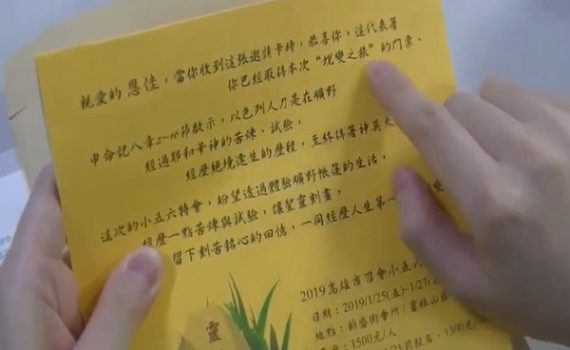 親愛的 恩佳，當你收到這張邀請卡時，恭喜你，這代表著
你已經取得本次“蛻變之旅”的門票。
申命記八章2~16節啟示，以色列人乃是在曠野
經過耶和華神的苦煉、試驗，
經歷絕境逢生的歷程，至終得著神莫大
這次的小五六特會，盼望透過體驗曠野帳篷的生活，
經歷一點苦煉與試驗，讓聖靈刻畫，
留下刻苦銘心的回憶，一同經歷人生第一
變
靈
2019高雄市召會小五六
日期：2019/1/25(五)-1/27(
地點：新盛街會所/靈糧山莊
1500元/人
1300元